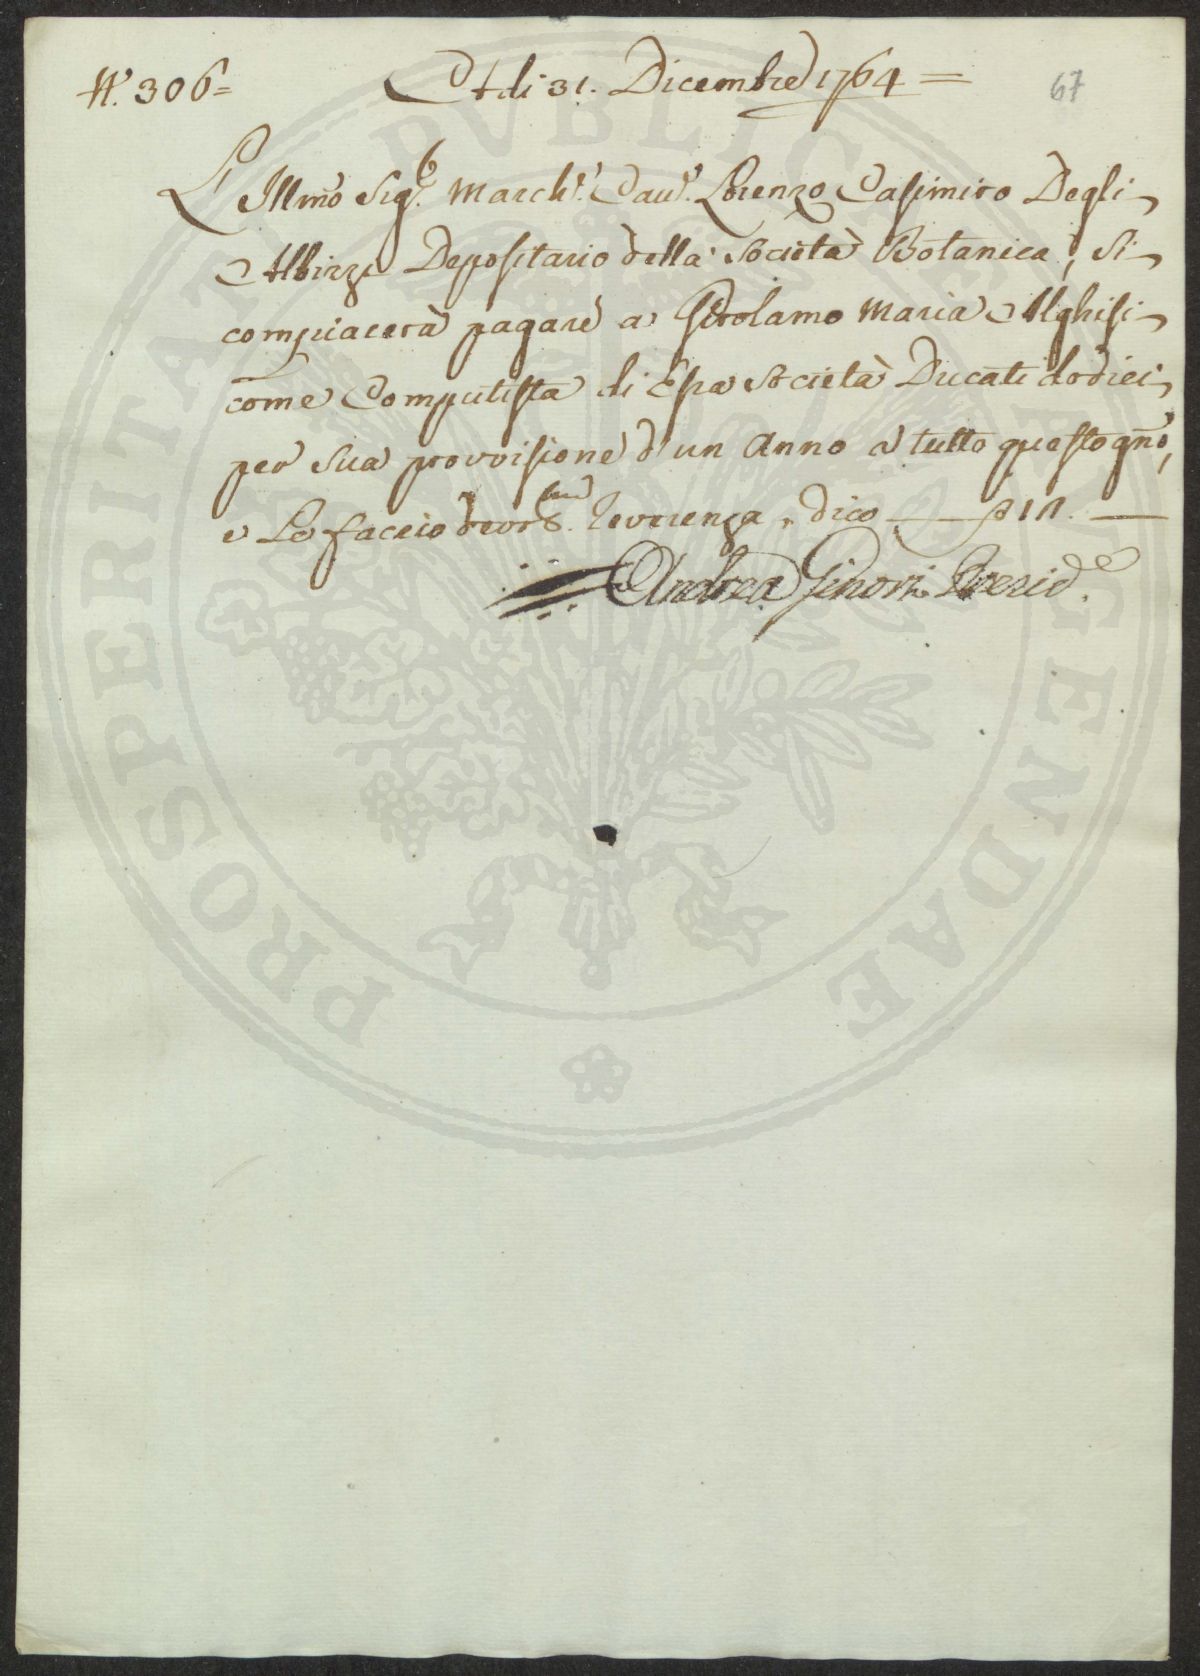 N.° 306 =
Adi 31. Dicembre 1764 =
67
L'Illmo Sig.re March.e Cav.e Lorenzo Casimiro Degli
Albizzi Depositario della Società Botanica, Si
compiacerà pagare a Girolamo Maria Alghisi
come Computista di Essa Società Ducati dodici
per Sua provvisione d'un Anno a tutto questo gno,
e Le faccio devotma reverenza, dico
Andrea Ginori Presid.e
PROSPERITATI PVBLICAE AVGENDAE